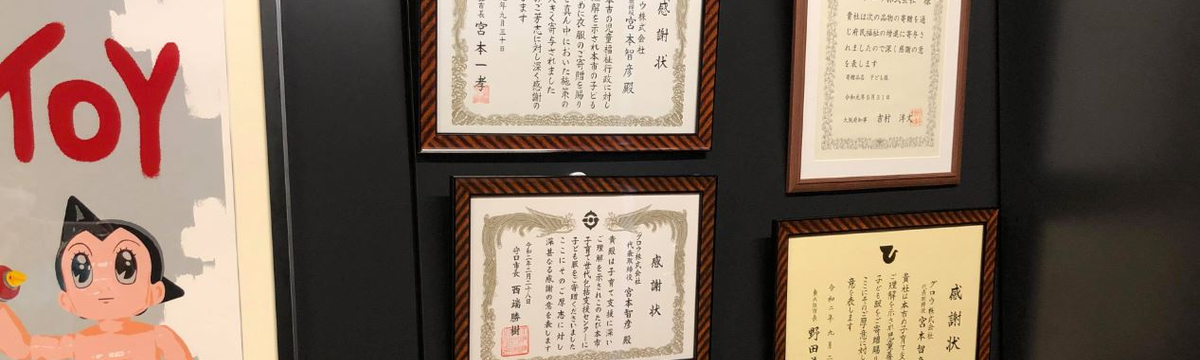 TOY
感謝状
ウ株式会社
宮本智彦 殿
本市の児童福祉行政に対し
理解を示され本市の子ども
めに衣服のご寄贈を賜り
真ん中においた施策の
きく寄与されました
ご芳志に対し深く感謝の
ます
年九月三十日
市長 宮本一孝
貴社は次の品物の寄贈を通
じ府民福祉の増進に寄与さ
れましたので深く感謝の意
を表します
寄贈品名 子ども服
令和元年8月21日
大阪府知事 吉村 洋文
感謝状
グロウ株式会社
代表取締役 宮本智彦 殿
貴殿は子育て支援に深い
ご理解を示されこのたび本市
子育て世代包括支援センターに
子ども服をご寄贈くださいました
ここにそのご厚志に対し
深甚なる感謝の意を表します
令和二年二月二十八日
守口市長 西端勝樹
感謝状
グロウ株式会社
代表取締役 宮本智
貴社は本市の子育て
ご理解を示され児童
子ども服をご寄贈賜り
ここにそのご厚意に対
意を表します
令和二年九月
野田